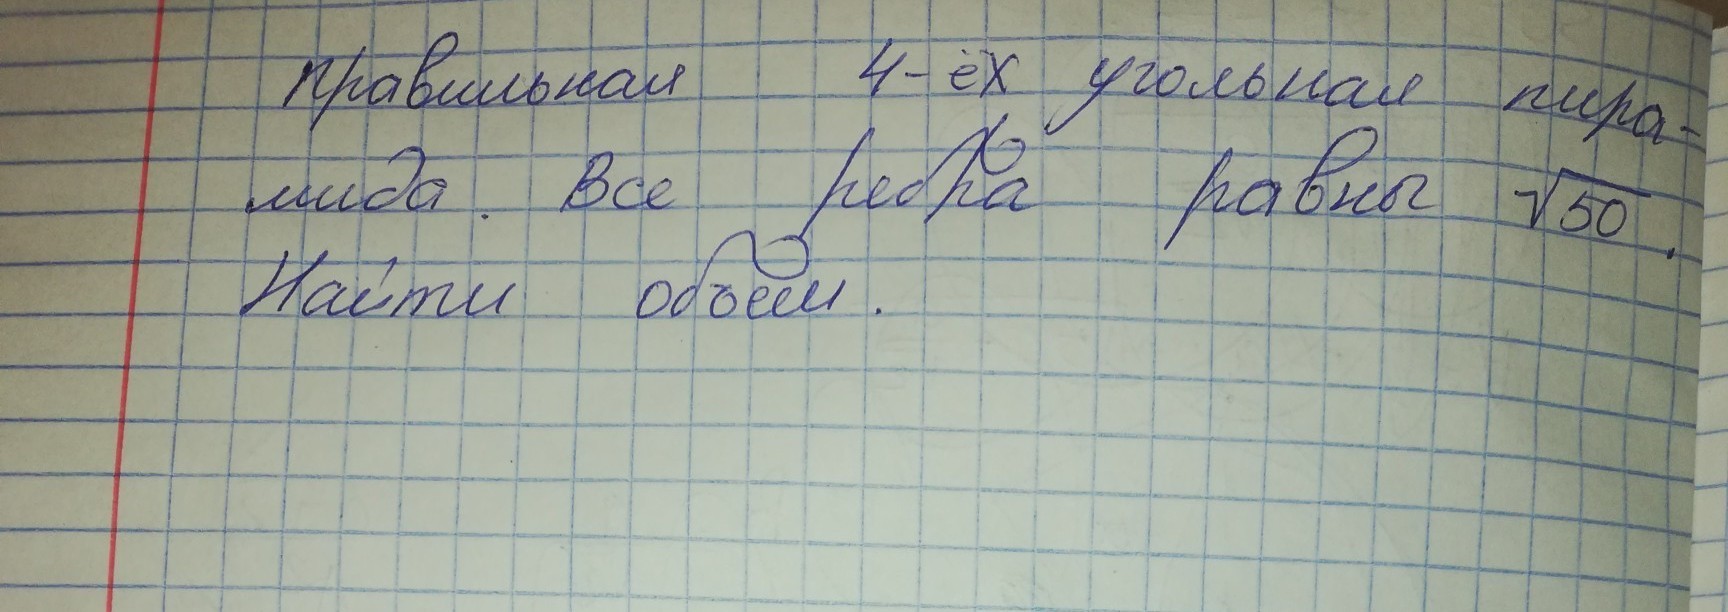 правильная 4-ёх угольная пира-
мида. Все ребра равны √50.
Найти объем.